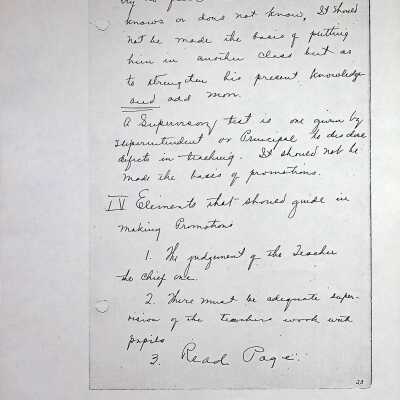 knows or does not know, It should
not be made the basis of putting
him in another class but as
to strengthen his present knowledge
and add more.
A Supervisory test is one given by
Superintendent or Principal to disclose
defects in teaching. It should not be
made the basis of promotions.
IV Elements that should guide in
making Promotions
1. The judgement of the Teacher
the chief one.
2. There must be adequate super-
vision of the teachers work with
pupils
3. Read Page.
23